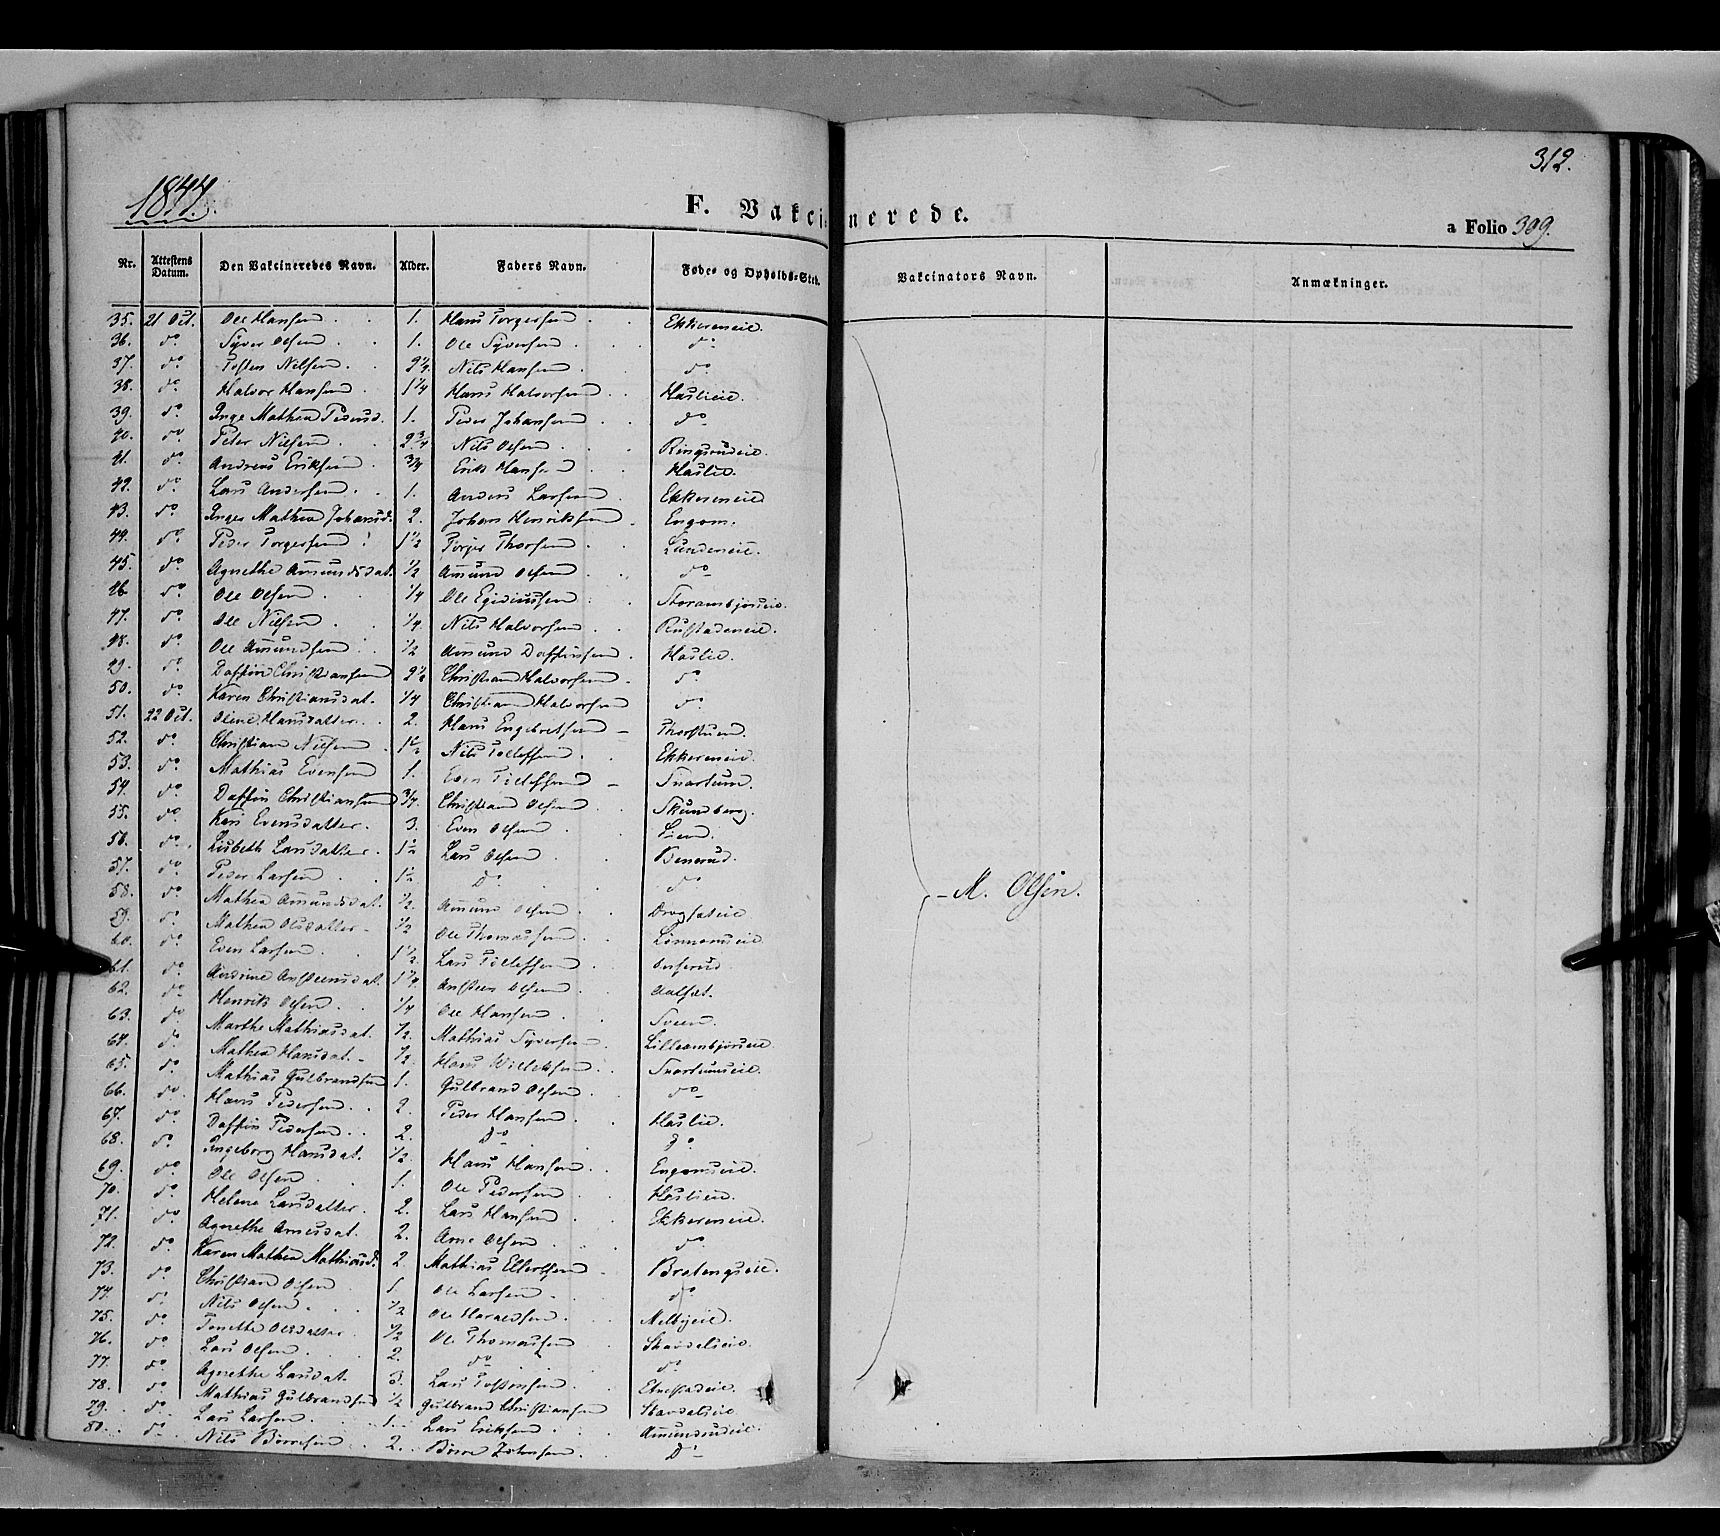 312.
1844.
F. Vakcinerede.
a Folio 309.
Nr. Attestens Datum. Den Vakcineredes Navn. Alder. Faders Navn. Føde- og Opholds-Sted. Vakcinators Navn. Anmærkninger.
35. 21 Oct. Ole Hansen 1. Hans Torgersen Ekkereneie
36. do Syver Olsen 1. Ole Syversen do
37. do Tosten Nilsen Nils Hansen do
38. do Halvor Hansen 1 1/4 Hans Halvorsen Haslieie.
39. do Inge Mathea Pedersd. 1. Peder Johansen do
40. do Peter Nilsen 2 3/4 Nils Olsen Ringsrudeie
41. do Andreas Eriksen 3/4 Erik Hansen Haslie.
42. do Lars Andersen 1. Anders Larsen Ekkereneie
43. do Inger Mathea Johansd. 2. Johan Henriksen Engom.
44. do Peder Torgersen 1 1/2 Torger Thorsen Lundeneie.
45. do Agnethe Amundsdat. 1/2 Amund Olsen do
46. do Ole Olsen 1/4 Ole Egidiussen
47. do Ole Nilsen 1/4. Nils Halvorsen Rustadeneie.
48. do Ole Amundsen 1/2 Amund Daffinsen Haslie.
49. do Daffin Christiansen 2 1/2 Christian Halvorsen do
50. do Karen Christiansdat. 1/4 Christian Halvorsen do
51. 22 Oct. Oline Hansdatter 2. Hans Engebretsen Thorstuen.
52. do Christian Nilsen 1 1/2 Nils Tollefsen Ekkereneie
53. do Mathias Evensen 1. Even Tollefsen Snortum.
54. do Daffin Christiansen 3/4. Christian Olsen Skundberg.
55. do Kari Evensdatter. 3. Even Olsen Lien.
56. do Lisbeth Larsdatter. 1 1/2 Lars Olsen Benerud.
57. do Peder Larsen 1 1/2 do do
58. do Mathea Amundsdat. 1/2. Amund Olsen
59. do Mathea Olsdatter 1/2 Ole Thomassen
60. do Even Larsen 1 1/2. Lars Tollefsen
61. do Andrine Anstensdat. Ansten Olsen Aalset.
62. do Henrik Olsen 1/4 Ole Hansen Sveen.
63. do Marthe Mathiasdat. 1/2. Mathias Syversen
64. do Mathea Hansdat. 1/2 Hans Snortumseie.
65. do Mathias Gulbrandsen 1. Gulbrand Olsen do
66. do Hans Pedersen 2. Peder Hansen Haslie.
67. do Daffin Pedersen 2. do do
68. do Ingeborg Hansdat. 1/2. Hans Hansen Engomseie.
69. do Ole Olsen 1. Ole Pedersen Haslieie.
70. do Helene Larsdatter. 2. Lars Hansen Ekkereneie.
71. do Agnethe Arnesdat. 2. Arne Olsen do
72. do Karen Mathea Mathiasd. 2. Mathias Ellertsen Bratengseie.
73. do Christian Olsen 1. Ole Larsen do
74. do Nils Olsen 1/2 Ole Haraldsen Melbyeie.
75. do Tonette Olsdatter 1/2 Ole Thomassen
76. do Lars Olsen 2. do do
77. do Agnethe Larsdat. 3. Lars Tostensen
78. do Mathias Gulbrandsen 1/2 Gulbrand Christiansen
79. do Lars Larsen 1. Lars Eriksen Amundrudeie.
80. do Nils Børresen 2. Børre Johnsen do
M. Olsen.